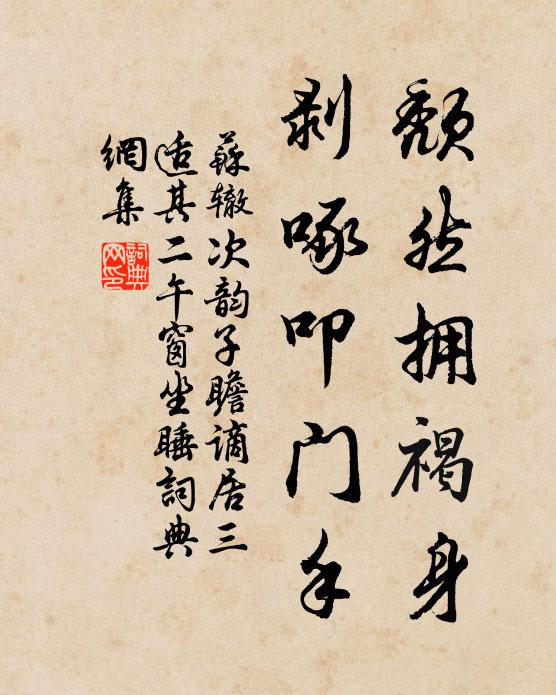 颓然拥褐身
剥啄叩门手
蘇辙次韵子瞻谪居三
适其二午窗坐睡词典
網集
詞典網印